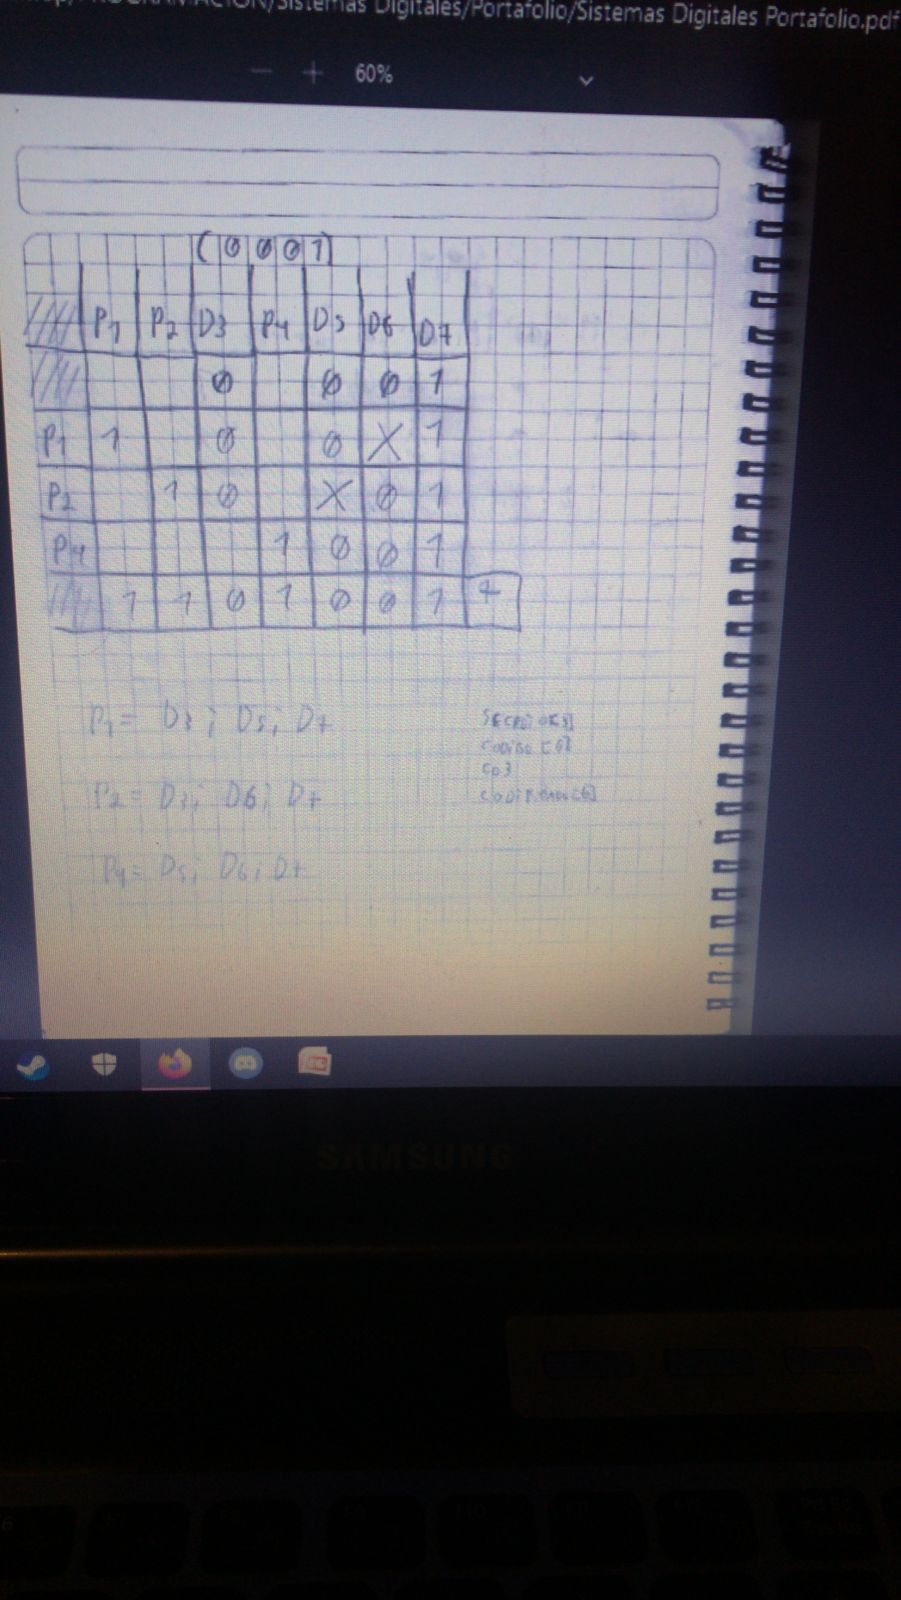 /Sistemas Digitales/Portafolio/Sistemas Digitales Portafolio.pdf
60%
(0 0 0 1)
P1 P2 D3 P4 D5 D6 D7
0 0 0 1
P1 1 0 0 X 1
P2 1 0 X 0 1
P4 1 0 0 1
1 1 0 1 0 0 1
P1 = D3; D5; D7
P2 = D3; D6; D7
P4 = D5; D6; D7
SAMSUNG